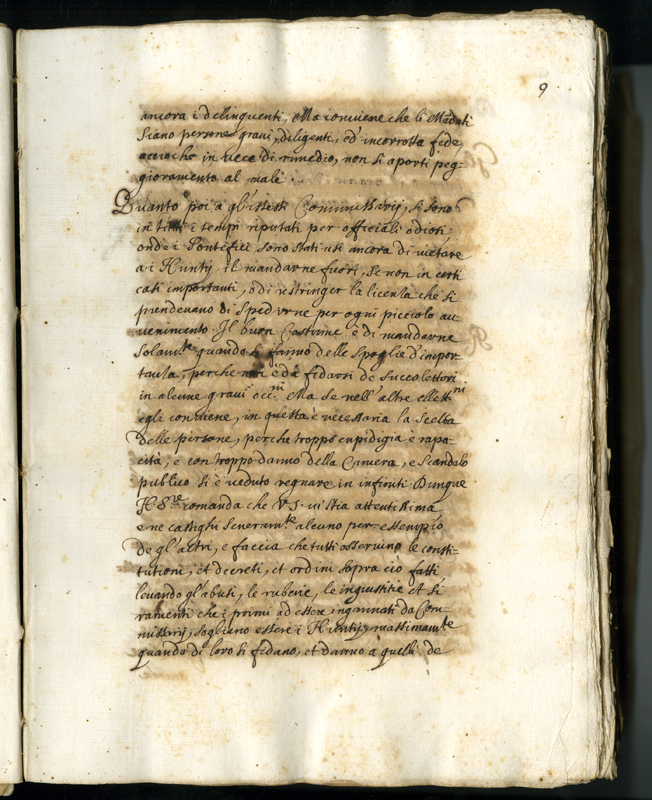 9
ancora i delinquenti, Ma conviene che li Mandati
siano persone gravi, diligenti, ed' incorrotta fede,
accioche in vece di rimedio, non si aporti peg-
gioramento al male.
Quanto poi a gl'istessi Commissarij, si sono
in tutti i tempi riputati per officiali odiosi;
onde i Pontefici sono stati usi ancora di vietare
a i Nuntij il mandarne fuori, se non in certi
casi importanti, o di restringer la licenza che si
prendevano di spedirne per ogni picciolo av-
venimento. Il buon Costume è di mandarne
solam.te quando si fanno delle spoglie d'impor-
tanza, perche non è da fidarsi de succolettori
in alcune gravi occ.ni Ma se nell'altre elett.ni
egli conviene, in questa è necessaria la scelta
delle persone, perche troppo cupidigia e rapa-
cità, e con troppo danno della Camera, e scandalo
publico si è veduto regnare in infiniti Dunque
N. S.re comanda che V.S. vi stia attentissima
e ne castighi severam.te alcuno per essempio
de gl'altri, e faccia che tutti osservino le consti-
tutioni, et decreti, et ordini sopra ciò fatti
levando gl'abusi, le ruberie, le ingiustitie et si
ramenti che i primi ad essere ingannati da Com-
missarij, sogliano essere i Nuntij, massimam.te
quando di loro si fidano, et danno a quelli de